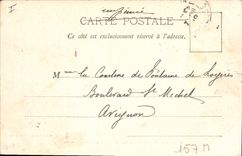 I
imprimé
CARTE POSTALE
Ce côté est exclusivement réservé à l'adresse.
M la Comtesse de Fontaine de
Boulevard St Michel
Avignon
157 M